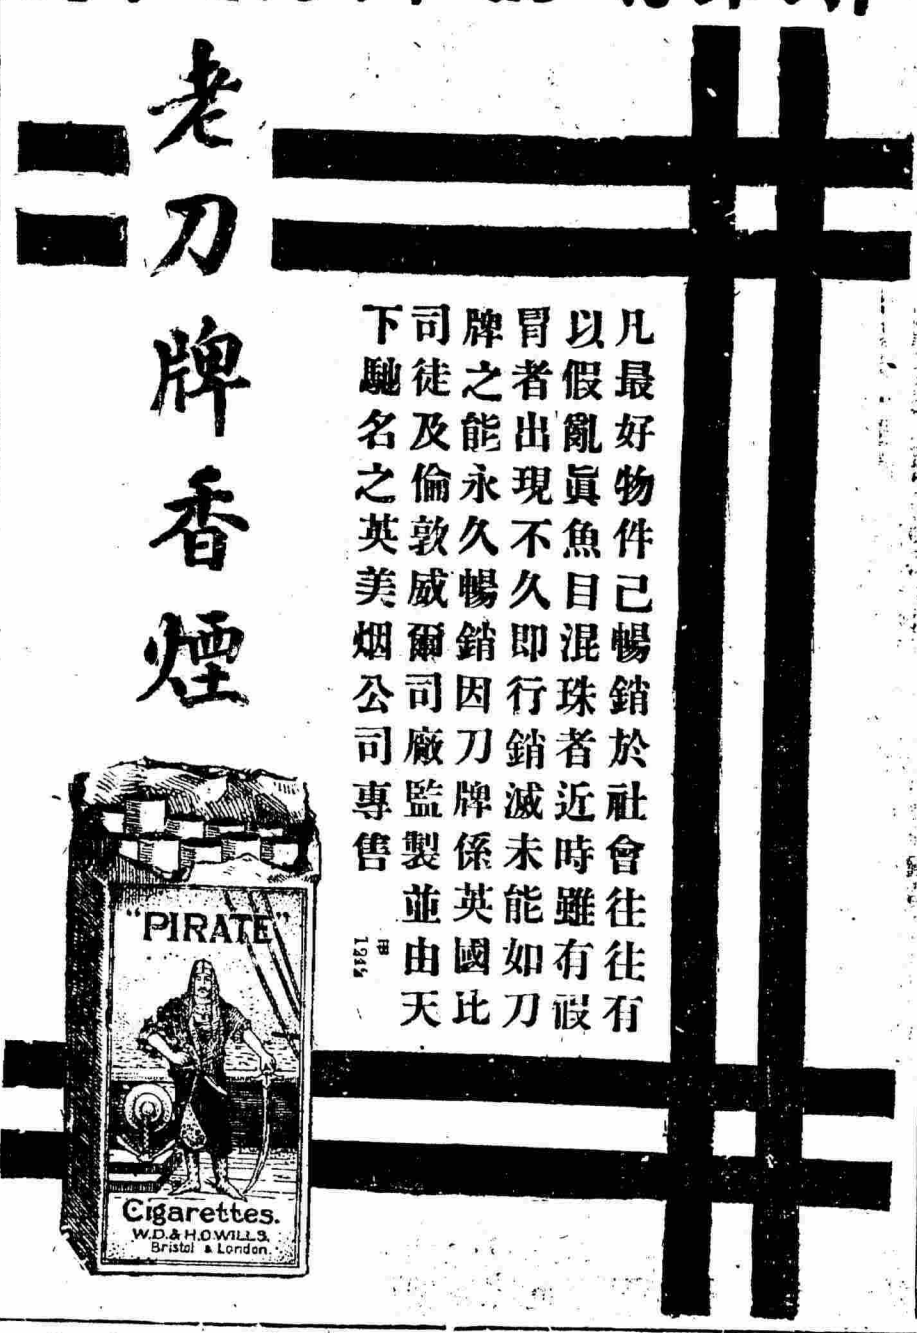 老刀牌香煙
凡最好物件已暢銷於社會往往有
以假亂眞魚目混珠者近時雖有假
冐者出現不久即行銷滅未能如刀
牌之能永久暢銷因刀牌係英國比
司徒及倫敦威爾司廠監製並由天
下馳名之英美烟公司專售
"PIRATE"
Cigarettes.
W.D.&H.O.WILLS,
Bristol & London.